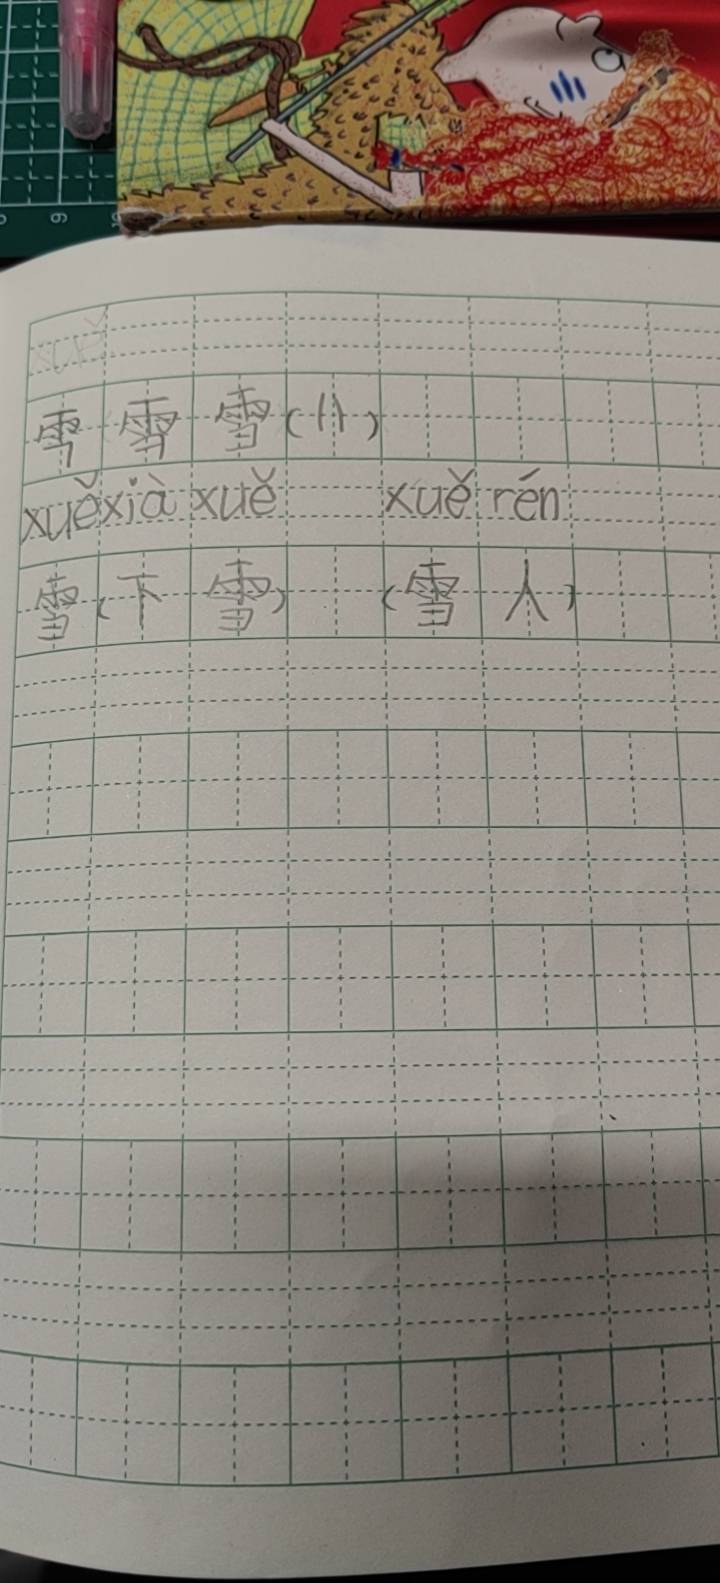 雪 雪 雪(11)
xuě xià xuě xuě rén
雪(下雪) (雪人)